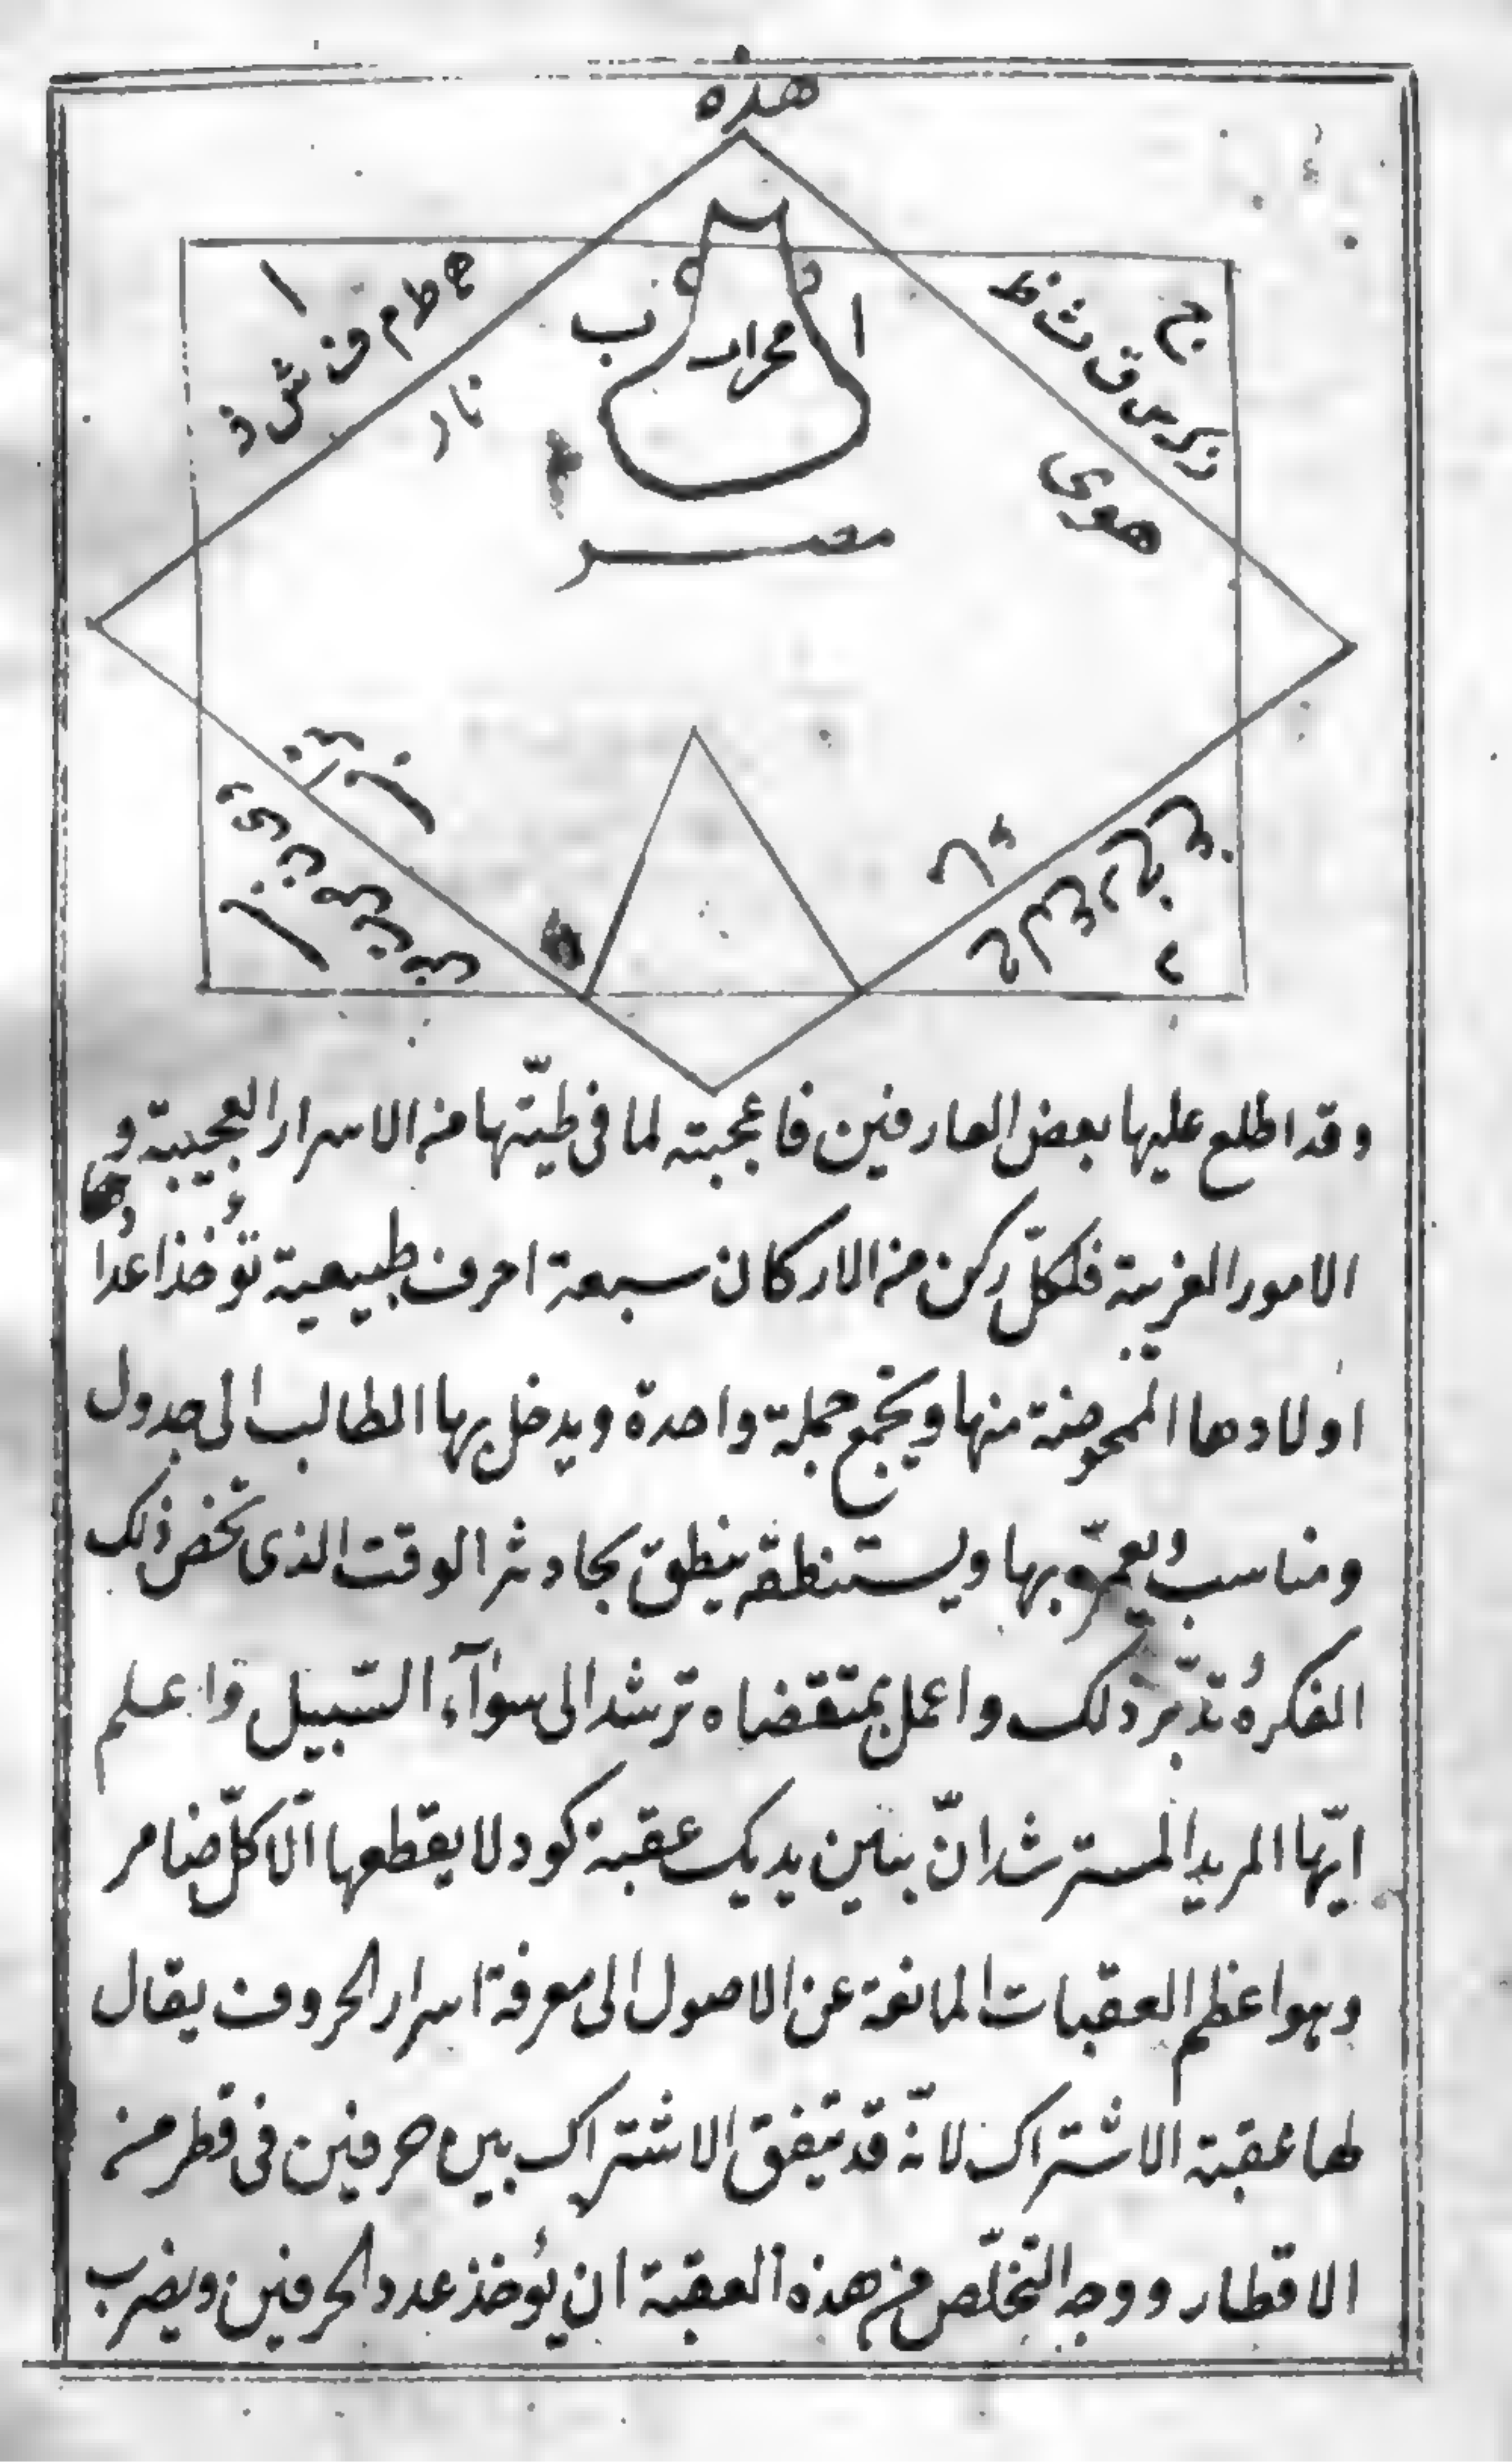 هذه
ج
ز ك س ق ث ظ
هوى
ا
ه ط م ف ش ذ
نار
ا
محراب
ب
مصر
ماء
د
تراب
ب
وقد اطلع عليها بعض العارفين فاعجبته لما فى طيّتها من الاسرار العجيبة و
الامور الغريبة فلكلّ ركن من الاركان سبعة احرف طبيعية تؤخذ اعداد
اولادها الممحوضة منها ويجمع جملة واحدة ويدخل بها الطالب الى جدول
ومناسب ويعمّره بها ويستنطقه ينطق بحادث الوقت الذى تخض ذلك
الفكره تدبّر ذلك واعمل بمتقضاه ترشد الى سوآء السّبيل واعلم
ايّها المريد المسترشد انّ بين يديك عقبة كود لا يقطعها الّا كلّ ضامر
وهو اعظم العقبات المانعة عن الاصول الى معرفة اسرار الحروف يقال
لها عقبة الاشتراك لانّه قد يتفق الاشتراك بين حرفين فى قطر من
الاقطار ووجه التخلّص من هذه العقبة ان يؤخذ عدد الحرفين ويضرب